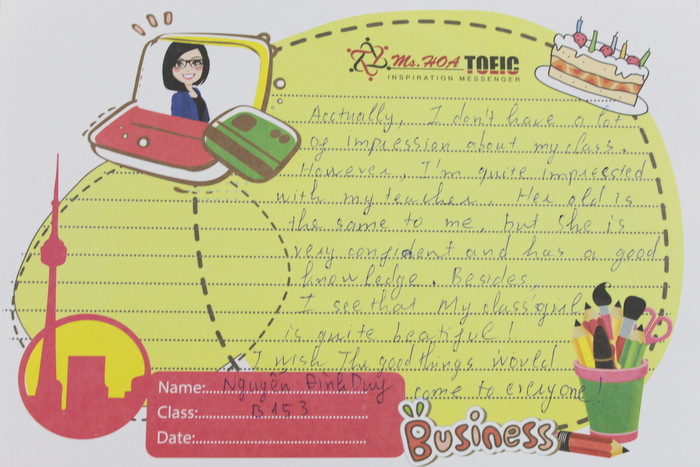 Ms. HOA TOEIC
INSPIRATION MESSENGER
Acctually, I don't have a lot
of impression about my class.
However, I'm quite impressed
with my teacher. Her old is
the same to me, but she is
very confident and has a good
knowledge. Besides,
I see that My class girl
is quite beatiful!
I wish The good things would
come to everyone!
Name: Nguyễn Đình Duy
Class: B153
Date:
Business